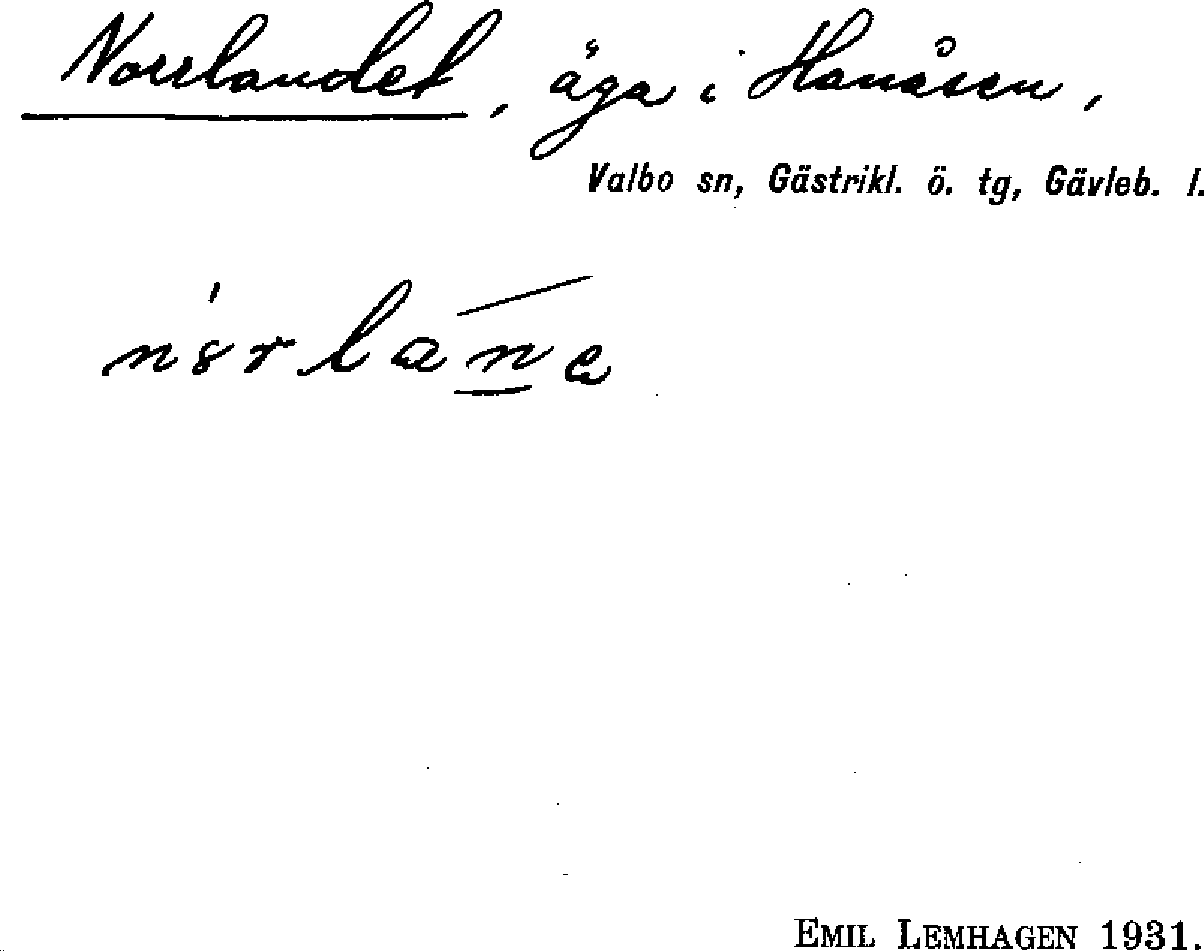 Norrlandet, äga i Hanåsen,
Valbo sn, Gästrikl. ö. tg, Gävleb. l.
EMIL LEMHAGEN 1931.